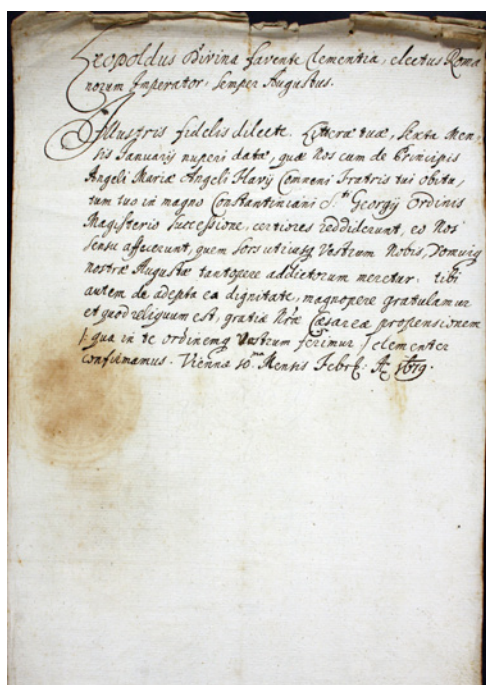 Leopoldus Divina favente Clementia, electus Roma
norum Imperator, Semper Augustus.
Illustris fidelis dilecte. Litteræ tuæ, Sexta Men,
sis Januarij nuperi datæ, quæ Nos cum de Principis
Angeli Mariæ Angeli Flavij Comneni Fratris tui obitu,
tum tuo in magno Constantiniani S.ti Georgij Ordinis
Magisterio Successione, certiores reddiderunt, eo Nos
sensu affecerunt, quem Sors utriusq Vestrum Nobis, Domuiq
nostræ Augustæ tantopere addictorum meretur. tibi
autem de adepta ea dignitate, magnopere gratulamur
et quod reliquum est, gratiæ Nræ Cæsareæ propensionem
/: qua in te ordinemq Vestrum ferimur :/ clementer
confirmamus. Viennæ 10.ma Mensis Febr: Aº 1679.